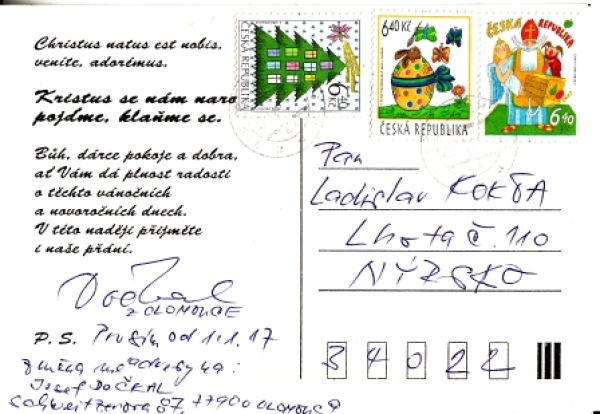 Christus natus est nobis,
venite, adorémus.
Kristus se nám naro
pojďme, klaňme se.
Bůh, dárce pokoje a dobra,
ať Vám dá plnost radosti
o těchto vánočních
a novoročních dnech.
V této naději přijměte
i naše přání.
Dočkal
z OLOMOUCE
P. S. Prosím od 1.1.17
změna na:
Josef DOČKAL
Schweitzerova 87, 77900 OLOMOUC 9
ČESKÁ REPUBLIKA
6,40 Kč
6,40 Kč
ČESKÁ REPUBLIKA
ČESKÁ REPUBLIKA
6,40
Pan
Ladislav
Lhota č. 110
NÝRSKO
34022